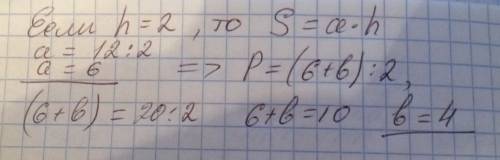 Если h = 2, то S = a·h
a = 12:2
a = 6 => P = (6+b):2,
(6+b) = 20:2 6+b=10 b = 4